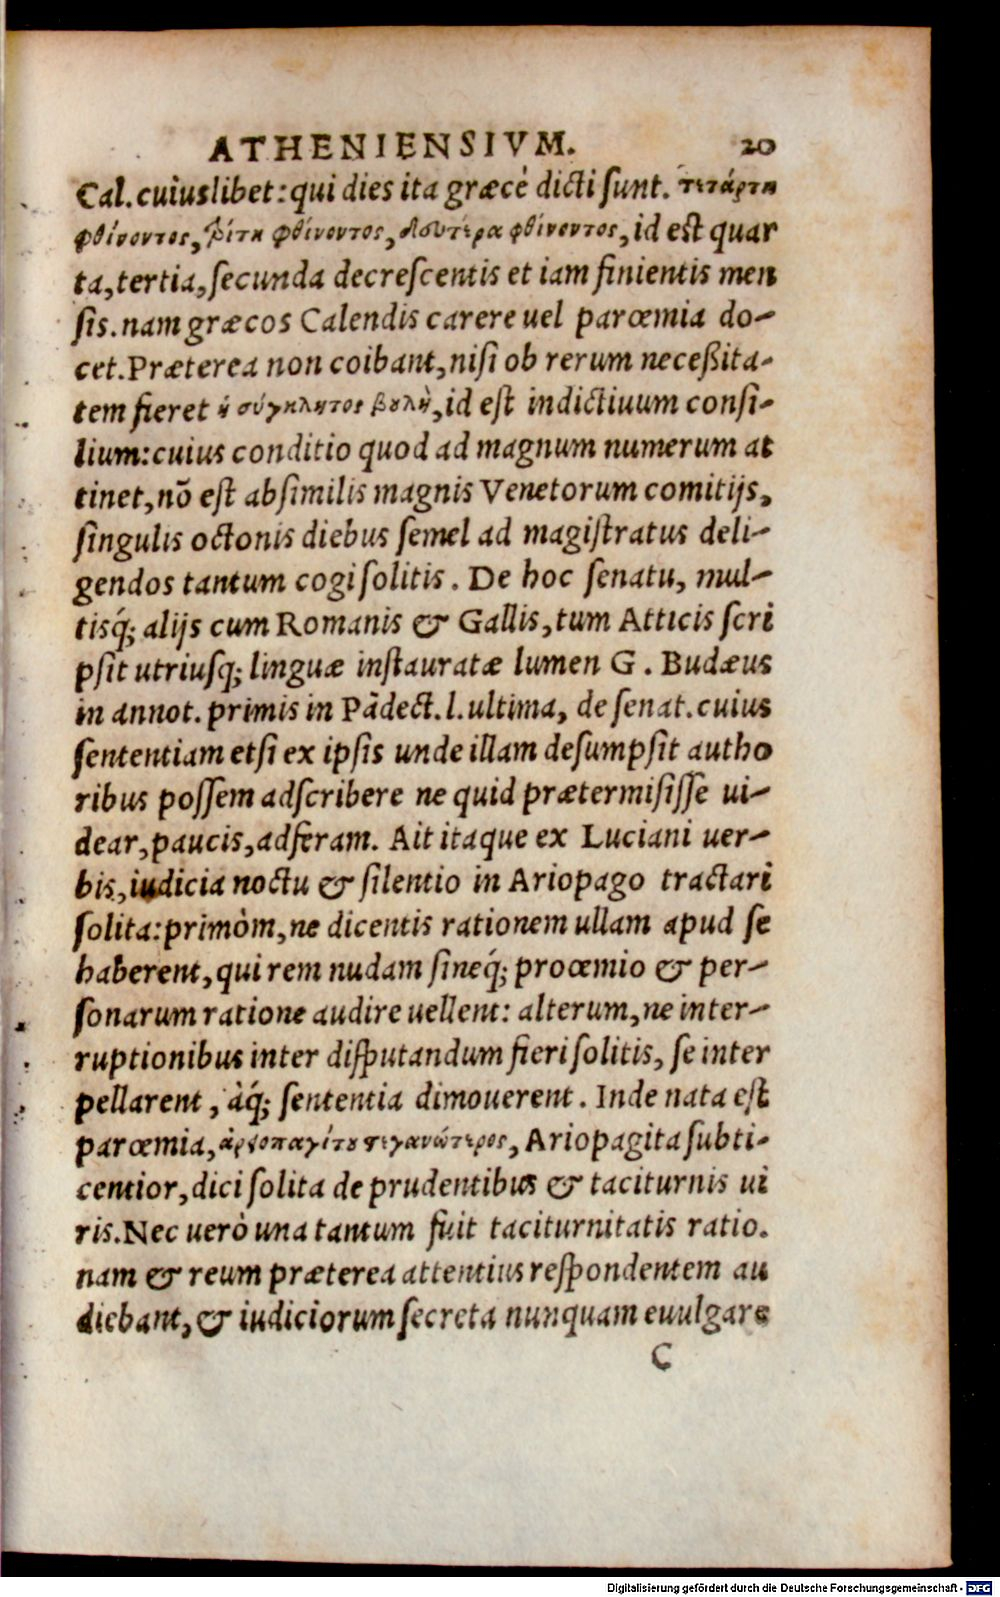 ATHENIENSIVM. 20
Cal. cuiuslibet: qui dies ita græcè dicti sunt. τετάρτη
φθίνοντος, τρίτη φθίνοντος, δευτέρα φθίνοντος, id est quar
ta, tertia, secunda decrescentis et iam finientis men
sis. nam græcos Calendis carere uel parœmia do-
cet. Præterea non coibant, nisi ob rerum neceßita-
tem fieret ἡ σύγκλητος βουλὴ, id est indictiuum consi-
lium: cuius conditio quod ad magnum numerum at
tinet, nõ est absimilis magnis Venetorum comitijs,
singulis octonis diebus semel ad magistratus deli-
gendos tantum cogi solitis. De hoc senatu, mul-
tisq́; alijs cum Romanis & Gallis, tum Atticis scri
psit utriusq; linguæ instauratæ lumen G. Budæus
in annot. primis in Pãdect. l. ultima, de senat. cuius
sententiam etsi ex ipsis unde illam desumpsit autho
ribus possem adscribere ne quid prætermisisse ui-
dear, paucis, adferam. Ait itaque ex Luciani uer-
bis, iudicia noctu & silentio in Ariopago tractari
solita: primòm, ne dicentis rationem ullam apud se
haberent, qui rem nudam sineq́; proœmio & per-
sonarum ratione audire uellent: alterum, ne inter-
ruptionibus inter disputandum fieri solitis, se inter
pellarent, àq́; sententia dimouerent. Inde nata est
parœmia, ἀρεοπαγίτου στεγανώτερος, Ariopagita subti-
centior, dici solita de prudentibus & taciturnis ui
ris. Nec uerò una tantum fuit taciturnitatis ratio.
nam & reum præterea attentius respondentem au
diebant, & iudiciorum secreta nunquam euulgare
C
Digitalisierung gefördert durch die Deutsche Forschungsgemeinschaft - DFG